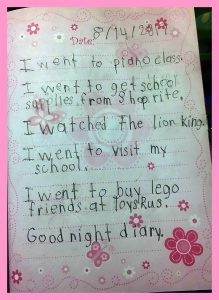 Date:
I went to piano class.
I went to get school
supplies from shoprite.
I watched the lion king.
I went to visit my
school.
I went to buy lego
friends at toysRus.
Good night diary.